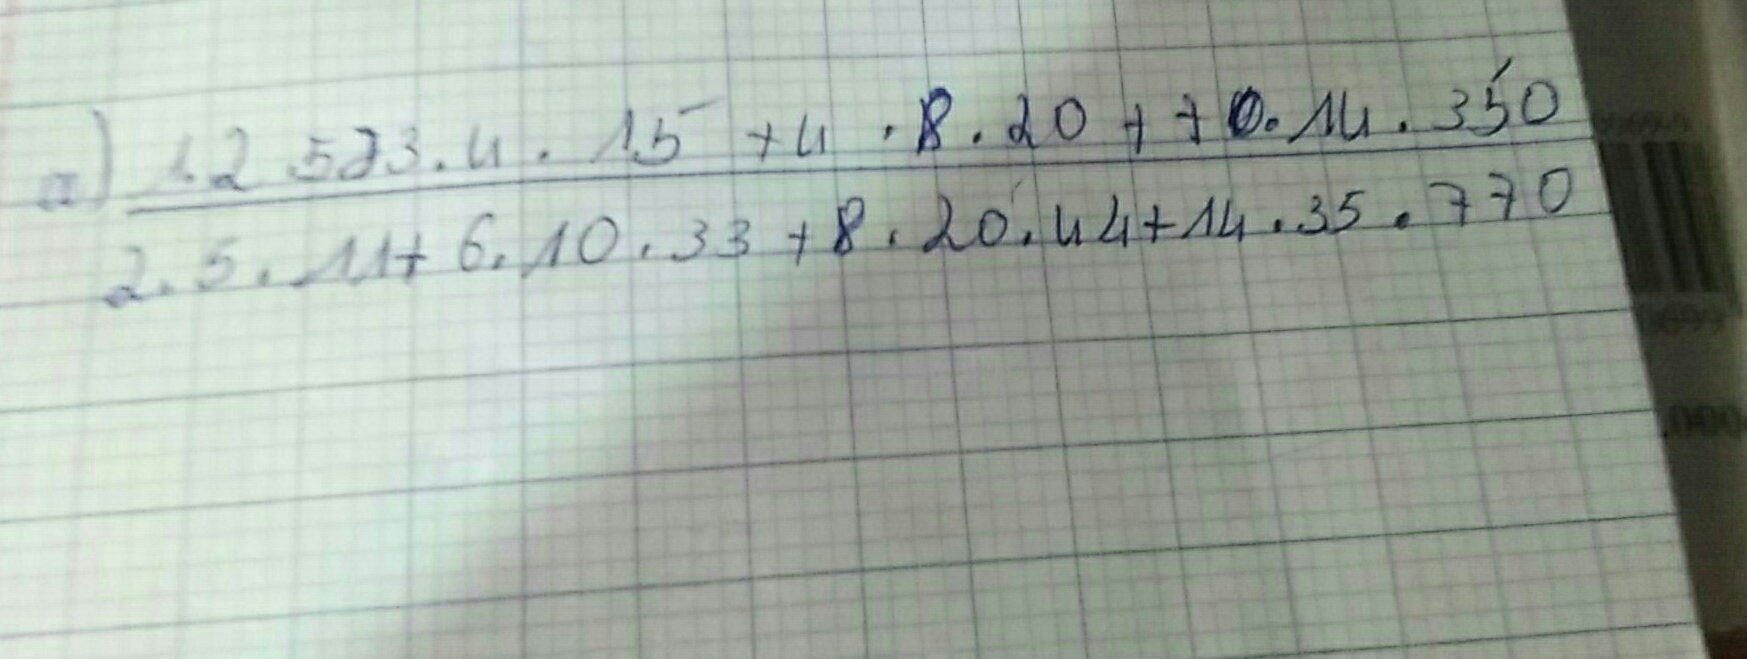 a) 1.2 5+3.4.15 +4.8.20+70.14.350
2.5.11+6.10.33+8.20.44+14.35.770